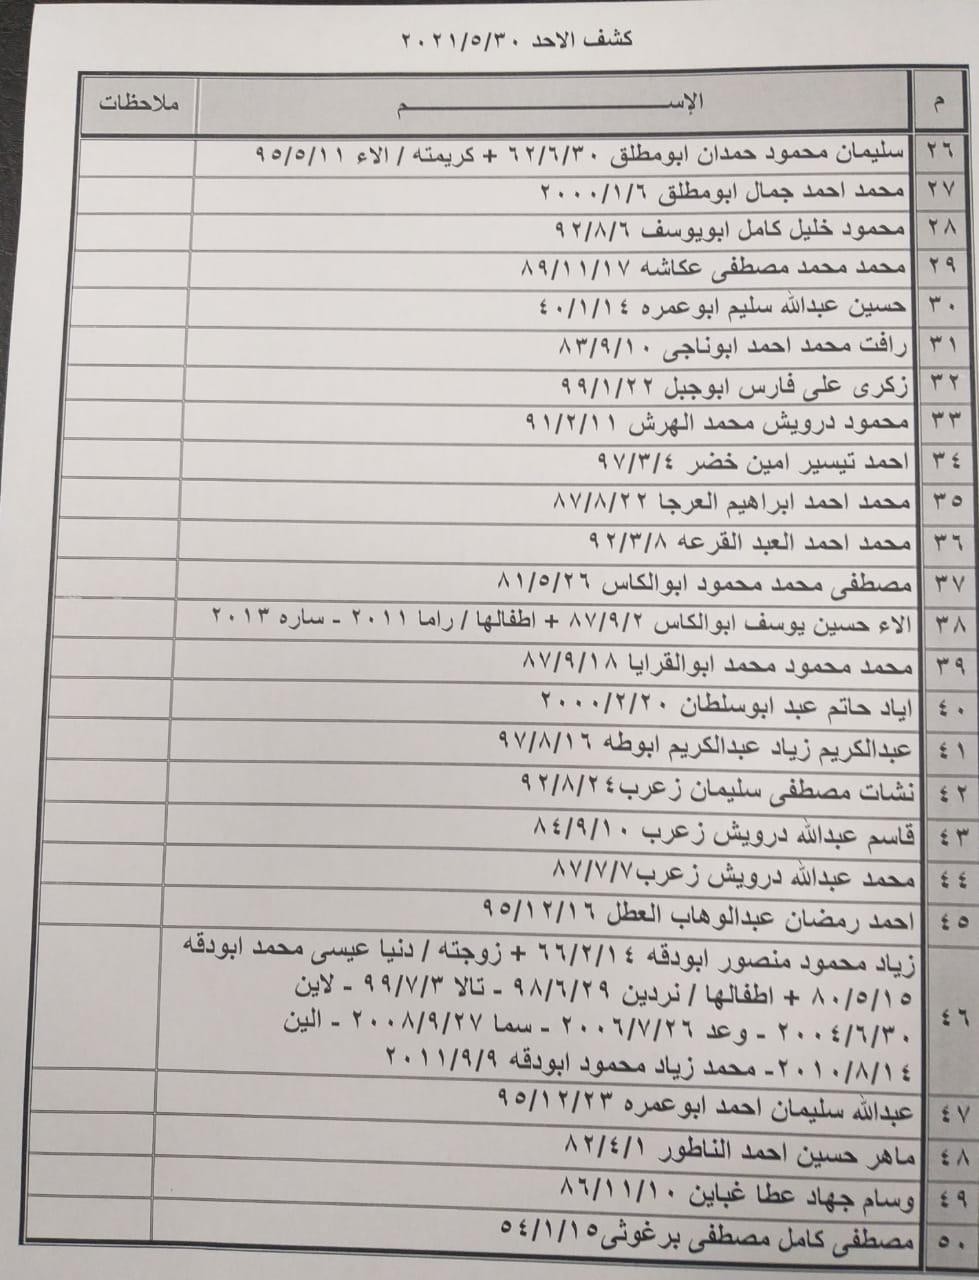 كشف الاحد ٢٠٢١/٥/٣٠
م الإســـــــــم ملاحظات
٢٦ سليمان محمود حمدان ابومطلق ٦٢/٦/٣٠ + كريمته / الاء ٩٥/٥/١١
٢٧ محمد احمد جمال ابومطلق ٢٠٠٠/١/٦
٢٨ محمود خليل كامل ابويوسف ٩٢/٨/٦
٢٩ محمد محمد مصطفى عكاشه ٨٩/١١/١٧
٣٠ حسين عبدالله سليم ابوعمره ٤٠/١/١٤
٣١ رافت محمد احمد ابوناجى ٨٣/٩/١٠
٣٢ زكرى على فارس ابوجبل ٩٩/١/٢٢
٣٣ محمود درويش محمد الهرش ٩١/٢/١١
٣٤ احمد تيسير امين خضر ٩٧/٣/٤
٣٥ محمد احمد ابراهيم العرجا ٨٧/٨/٢٢
٣٦ محمد احمد العبد القرعه ٩٢/٣/٨
٣٧ مصطفى محمد محمود ابوالكاس ٨١/٥/٢٦
٣٨ الاء حسين يوسف ابوالكاس ٨٧/٩/٢ + اطفالها / راما ٢٠١١ - ساره ٢٠١٣
٣٩ محمد محمود محمد ابوالقرايا ٨٧/٩/١٨
٤٠ اياد حاتم عبد ابوسلطان ٢٠٠٠/٢/٢٠
٤١ عبدالكريم زياد عبدالكريم ابوطه ٩٧/٨/١٦
٤٢ نشات مصطفى سليمان زعرب ٩٢/٨/٢٤
٤٣ قاسم عبدالله درويش زعرب ٨٤/٩/١٠
٤٤ محمد عبدالله درويش زعرب ٨٧/٧/٧
٤٥ احمد رمضان عبدالوهاب العطل ٩٥/١٢/١٦
٤٦ زياد محمود منصور ابودقه ٦٦/٢/١٤ + زوجته / دنيا عيسى محمد ابودقه
٨٠/٥/١٥ + اطفالها / نردين ٩٨/٦/٢٩ - تالا ٩٩/٧/٣ - لاين
٢٠٠٤/٦/٣٠ - وعد ٢٠٠٦/٧/٢٦ - سما ٢٠٠٨/٩/٢٧ - الين
٢٠١٠/٨/١٤ - محمد زياد محمود ابودقه ٢٠١١/٩/٩
٤٧ عبدالله سليمان احمد ابوعمره ٩٥/١٢/٢٣
٤٨ ماهر حسين احمد الناطور ٨٢/٤/١
٤٩ وسام جهاد عطا غباين ٨٦/١١/١٠
٥٠ مصطفى كامل مصطفى برغوثى ٥٤/١/١٥